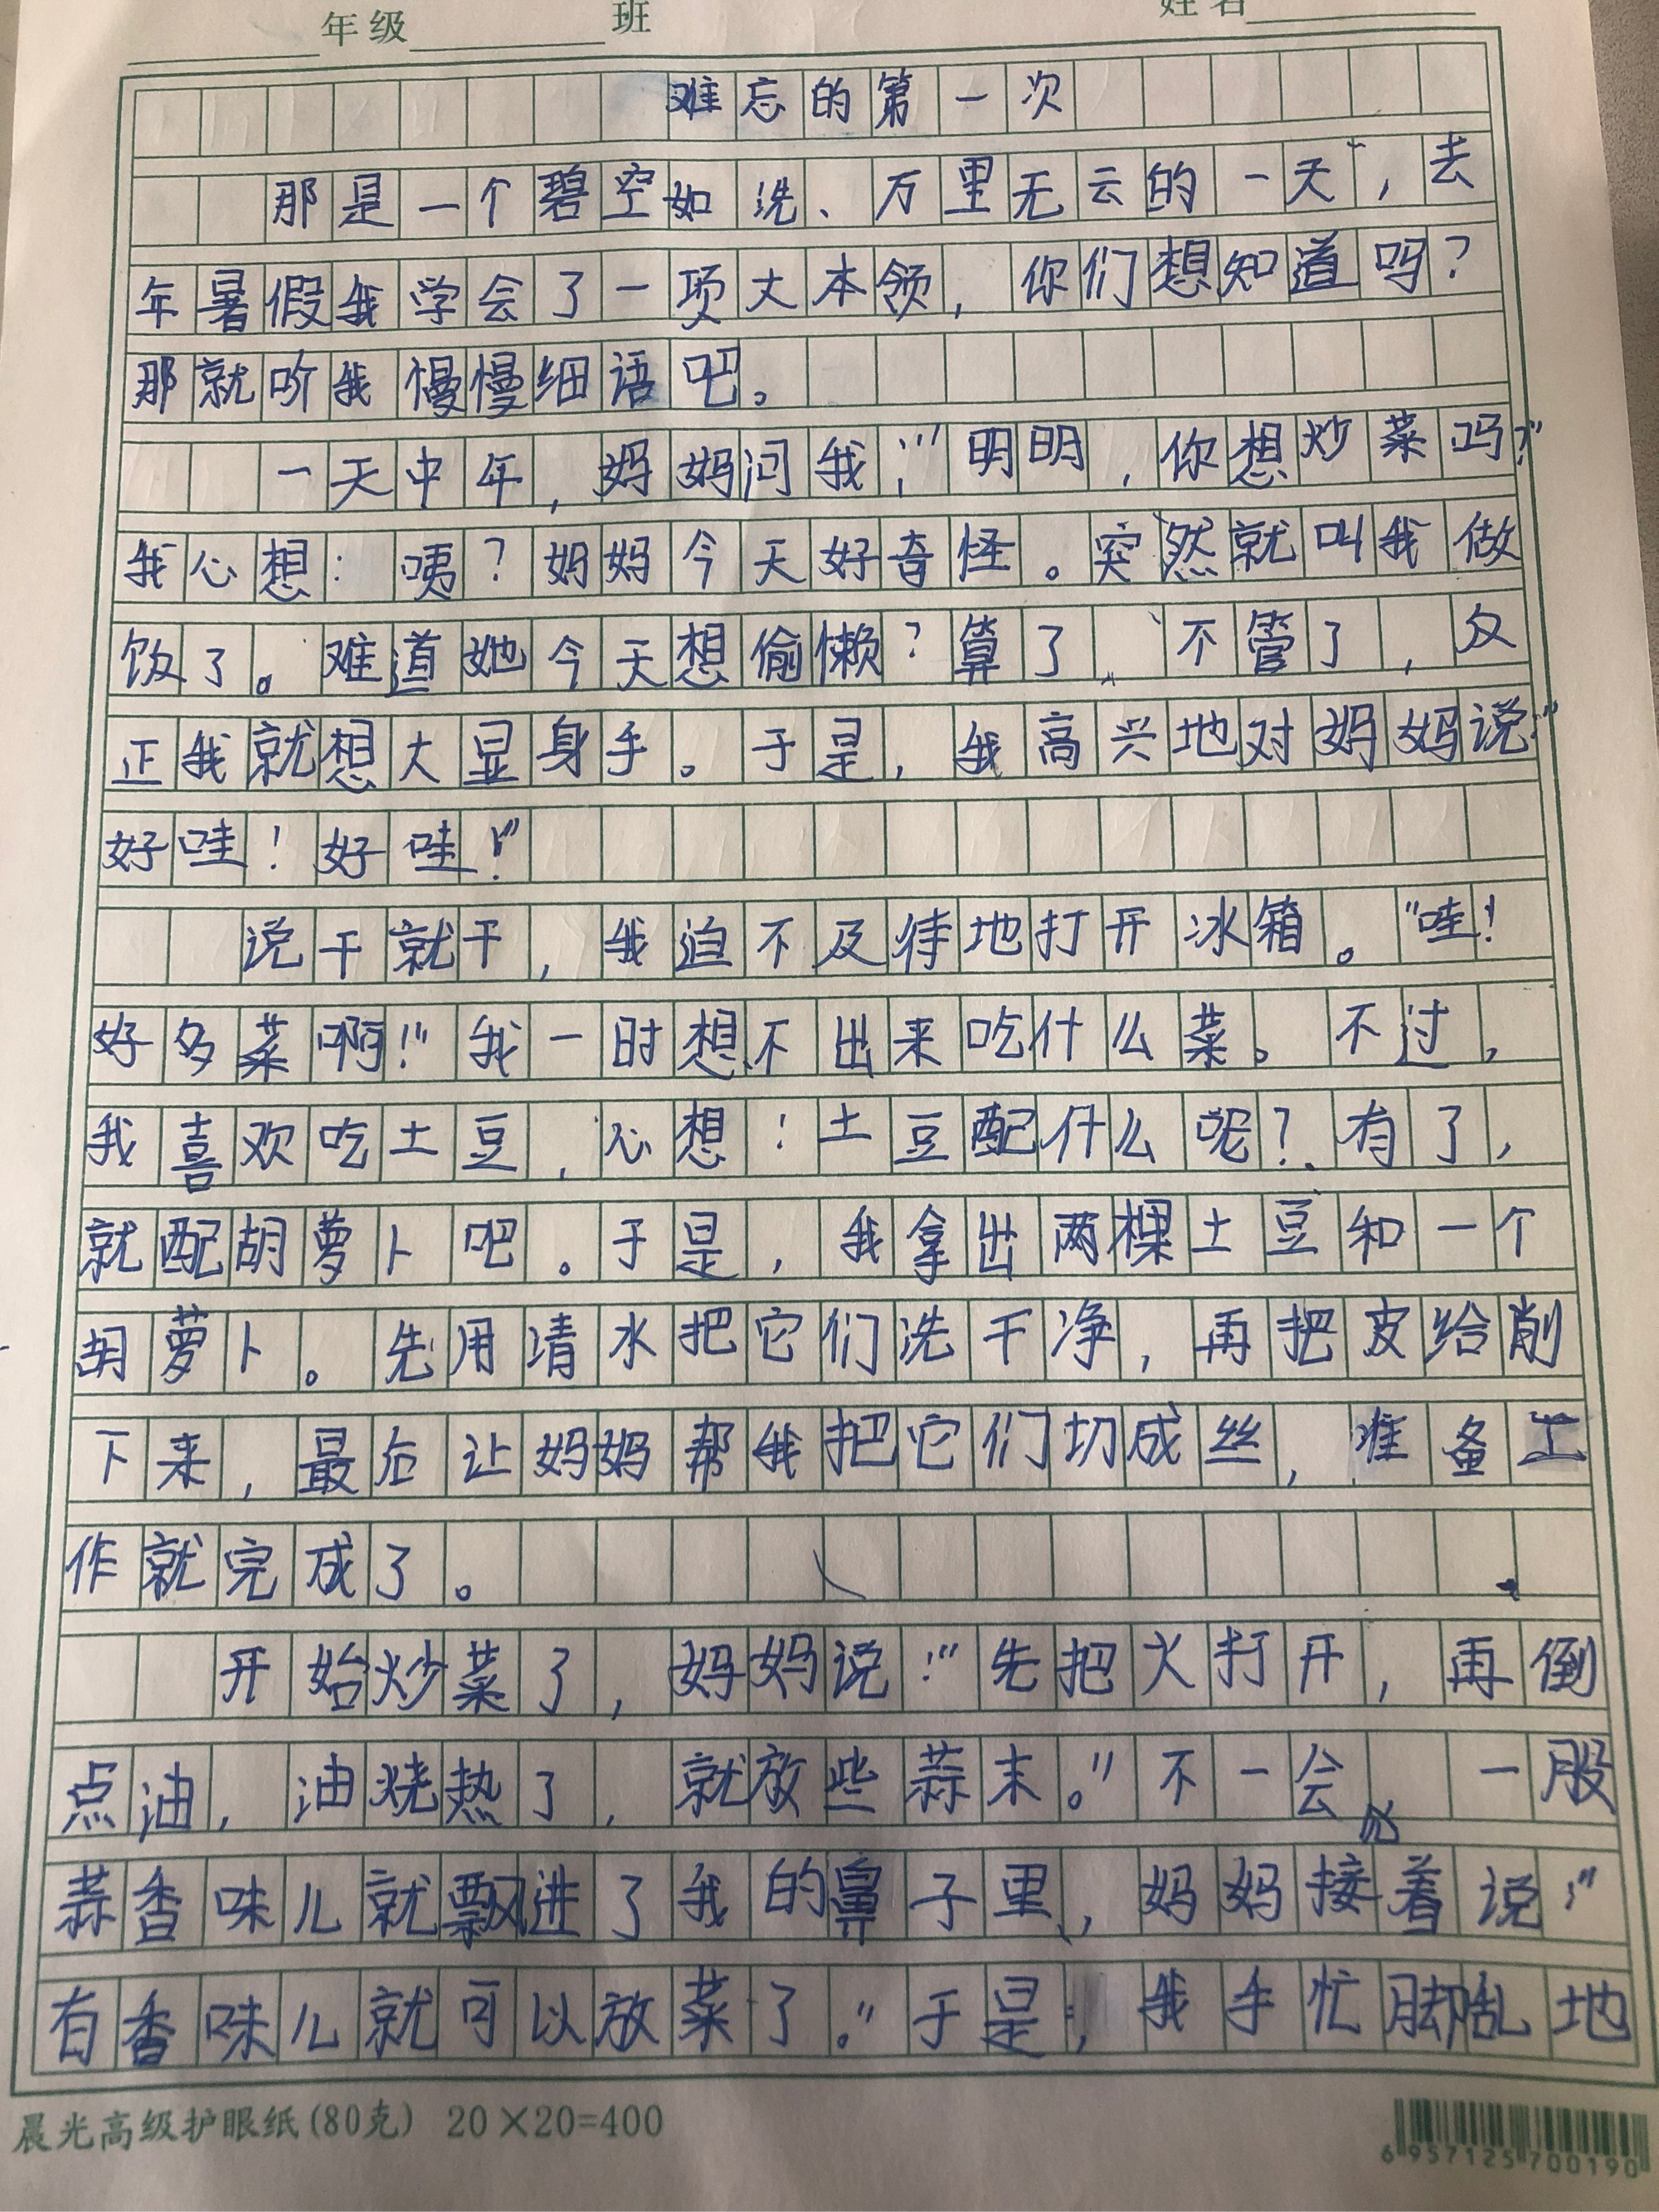 年级 班 姓名
难忘的第一次
那是一个碧空如洗、万里无云的一天,去
年暑假我学会了一项大本领,你们想知道吗?
那就听我慢慢细语吧。
一天中年,妈妈问我:“明明,你想炒菜吗?”
我心想:咦?妈妈今天好奇怪。突然就叫我做
饭了。难道她今天想偷懒?算了,不管了,反
正我就想大显身手。于是,我高兴地对妈妈说:“
好哇!好哇!”
说干就干,我迫不及待地打开冰箱。“哇!
好多菜啊!”我一时想不出来吃什么菜。不过,
我喜欢吃土豆,心想:土豆配什么呢?有了,
就配胡萝卜吧。于是,我拿出两棵土豆和一个
胡萝卜。先用清水把它们洗干净,再把皮给削
下来,最后让妈妈帮我把它们切成丝,准备工
作就完成了。
开始炒菜了,妈妈说:“先把火打开,再倒
点油,油烧热了,就放些蒜末。”不一会 一股
蒜香味儿就飘进了我的鼻子里,妈妈接着说:“
有香味儿就可以放菜了。”于是,我手忙脚乱地
晨光高级护眼纸(80克) 20×20=400
6 957125 700190